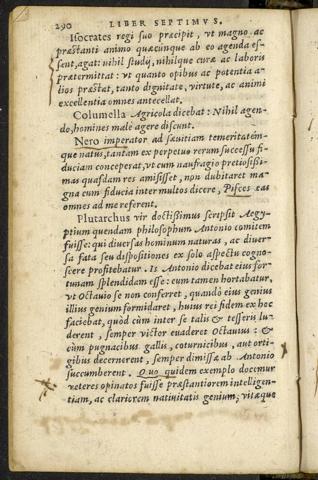 290 LIBER SEPTIMVS.
Isocrates regi suo præcipit, vt magno ac
præstanti animo quæcunque ab eo agenda es-
sent, agat: nihil studij, nihilque curæ ac laboris
prætermittat: vt quanto opibus ac potentia a-
lios præstat, tanto dignitate, virtute, ac animi
excellentia omnes antecellat.
Columella Agricola dicebat: Nihil agen-
do, homines malè agere discunt.
Nero imperator ad sæuitiam temeritatém-
que natus, tantam ex perpetuo rerum successu fi-
duciam conceperat, vt cum naufragio pretiosissi-
mas quasdam res amisisset, non dubitaret ma-
gna cum fiducia inter multos dicere, Pisces eas
omnes ad me referent.
Plutarchus vir doctissimus scripsit Aegy-
ptium quendam philosophum Antonio comitem
fuisse: qui diuersas hominum naturas, ac diuer-
sa fata seu dispositiones ex solo aspectu cogno-
scere profitebatur. Is Antonio dicebat eius for-
tunam splendidam esse: eum tamen hortabatur,
vt Octauio se non conferret, quandò eius genius
illius genium formidaret, huius rei fidem ex hoc
faciebat, quòd cùm inter se talis & tesseris lu-
derent, semper victor euaderet Octauius: &
cùm pugnacibus gallis, coturnicibus, aut orti-
gibus decernerent, semper dimissæ ab Antonio
succumberent. Quo quidem exemplo docemur
veteres opinatos fuisse præstantiorem intelligen-
tiam, ac clariorem natiuitatis genium, vitæque